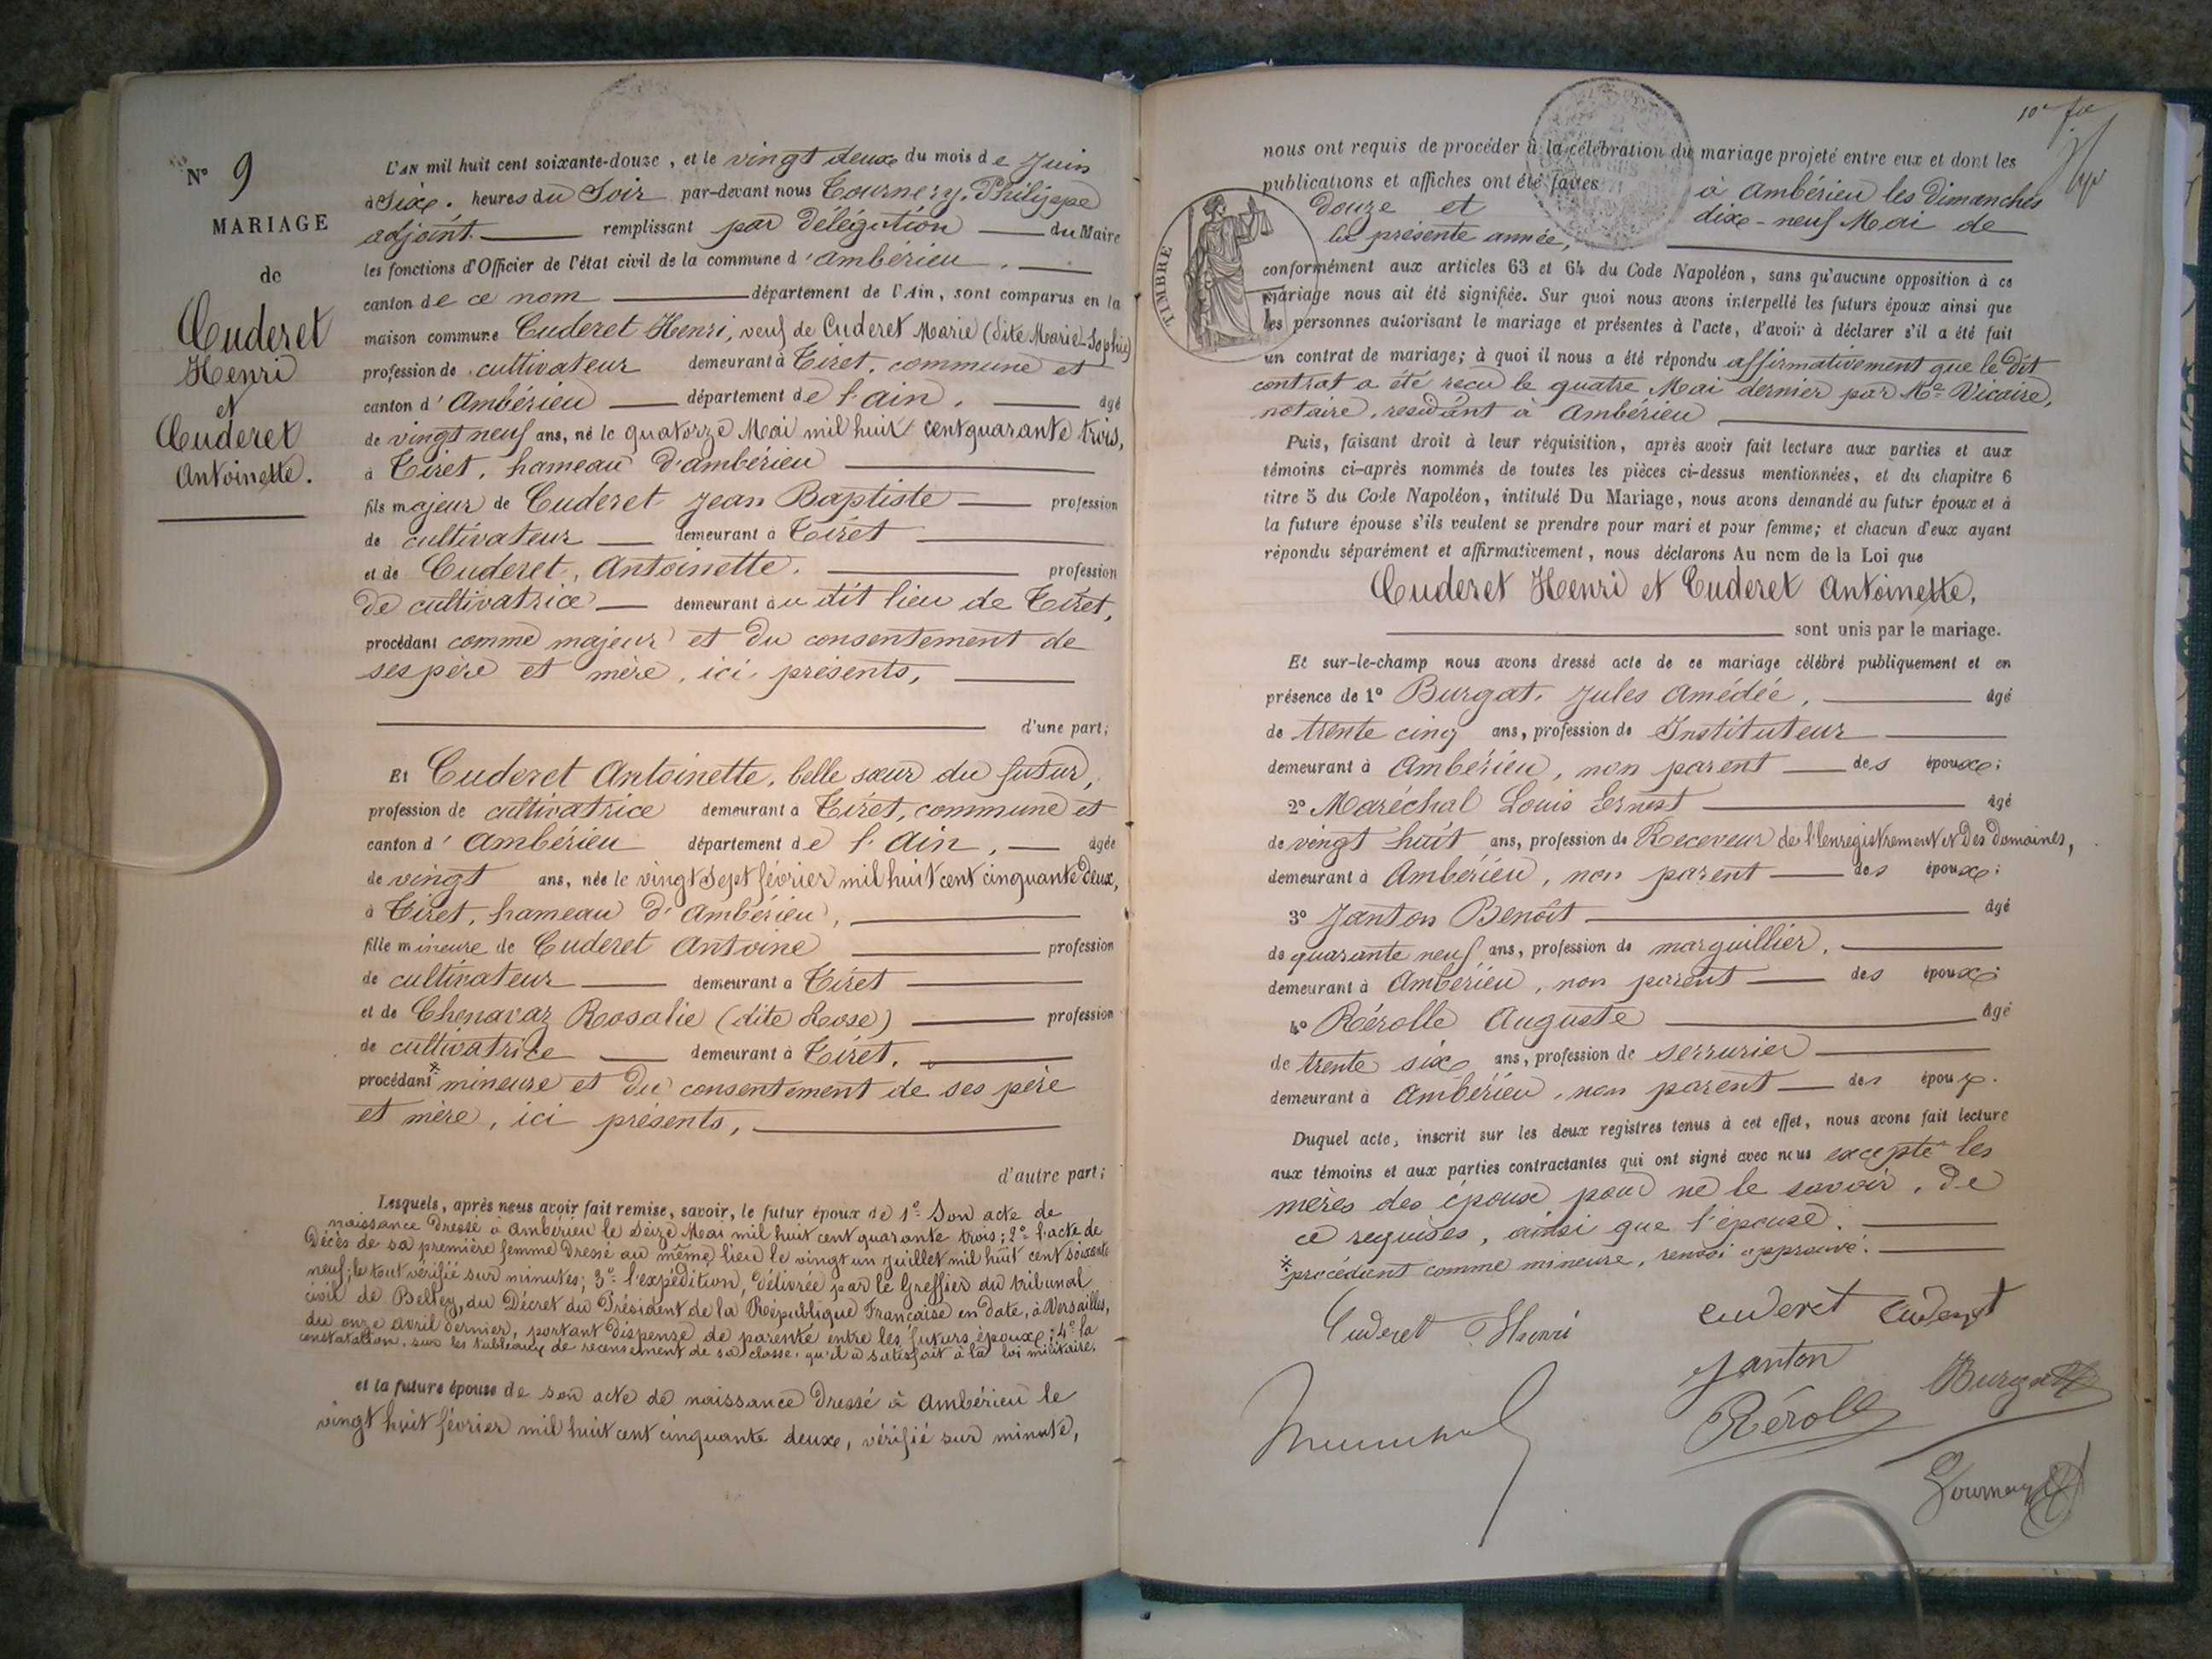 N° 9
MARIAGE
de
Cuderet
Henri
et
Cuderet
Antoinette.
L'AN mil huit cent soixante-douze, et le vingt deux du mois de Juin
à Six. heures du Soir par-devant nous Tournery, Philippe
adjoint. remplissant par délégation du Maire
les fonctions d'Officier de l'état civil de la commune d'ambérieu.
canton de ce nom département de l'Ain, sont comparus en la
maison commune Cuderet Henri, veuf de Cuderet Marie (dite Marie-Sophie)
profession de cultivateur demeurant à Tiret, commune et
canton d'Ambérieu département de l'ain, âgé
de vingt neuf ans, né le quatorze Mai mil huit cent quarante trois,
à Tiret, hameau d'ambérieu
fils majeur de Cuderet Jean Baptiste profession
de cultivateur demeurant à Tiret
et de Cuderet, Antoinette. profession
de cultivatrice demeurant au dit lieu de Tiret,
procédant comme majeur et du consentement de
ses père et mère, ici présents,
d'une part;
Et Cuderet Antoinette, belle sœur du futur,
profession de cultivatrice demeurant à Tiret, commune et
canton d'Ambérieu département de l'Ain, âgée
de vingt ans, née le vingt Sept février mil huit cent cinquante deux,
à Tiret, hameau d'Ambérieu,
fille mineure de Cuderet Antoine profession
de cultivateur demeurant à Tiret
et de Chenavaz Rosalie (dite Rose) profession
de cultivatrice demeurant à Tiret.
procédant * mineure et du consentement de ses père
et mère, ici présents,
d'autre part;
Lesquels, après nous avoir fait remise, savoir, le futur époux de 1° Son acte de
naissance dressé à Ambérieu le Seize Mai mil huit cent quarante trois; 2° l'acte de
Décès de sa première femme dressé au même lieu le vingt un juillet mil huit cent soixante
neuf; le tout vérifié sur minutes; 3° l'expédition, délivrée par le Greffier du tribunal
civil de Belley, du Décret du Président de la République Française en date, à Versailles,
du onze avril dernier, portant dispense de parenté entre les futurs époux; 4° la
constatation, sur les tableaux de recensement de sa classe, qu'il a satisfait à la loi militaire.
et la future épouse de son acte de naissance dressé à Ambérieu le
vingt huit février mil huit cent cinquante deux, vérifié sur minute,
nous ont requis de procéder à la célébration du mariage projeté entre eux et dont les
publications et affiches ont été faites à Ambérieu les Dimanches
douze et dix-neuf Mai de
la présente année,
TIMBRE
conformément aux articles 63 et 64 du Code Napoléon, sans qu'aucune opposition à ce
mariage nous ait été signifiée. Sur quoi nous avons interpellé les futurs époux ainsi que
les personnes autorisant le mariage et présentes à l'acte, d'avoir à déclarer s'il a été fait
un contrat de mariage; à quoi il nous a été répondu affirmativement que le dit
contrat a été reçu le quatre Mai dernier par Me Vicaire,
notaire, résidant à Ambérieu
Puis, faisant droit à leur réquisition, après avoir fait lecture aux parties et aux
témoins ci-après nommés de toutes les pièces ci-dessus mentionnées, et du chapitre 6
titre 5 du Code Napoléon, intitulé Du Mariage, nous avons demandé au futur époux et à
la future épouse s'ils veulent se prendre pour mari et pour femme; et chacun d'eux ayant
répondu séparément et affirmativement, nous déclarons Au nom de la Loi que
Cuderet Henri et Cuderet Antoinette,
sont unis par le mariage.
Et sur-le-champ nous avons dressé acte de ce mariage célébré publiquement et en
présence de 1° Burgat, Jules Amédée, âgé
de trente cinq ans, profession de Instituteur
demeurant à Ambérieu, non parent des époux;
2° Maréchal Louis Ernest âgé
de vingt huit ans, profession de Receveur de l'enregistrement et des domaines,
demeurant à Ambérieu, non parent des époux;
3° Janton Benoît âgé
de quarante neuf ans, profession de marguillier,
demeurant à Ambérieu, non parent des époux;
4° Rérolle Auguste âgé
de trente six ans, profession de serrurier
demeurant à Ambérieu, non parent des époux.
Duquel acte, inscrit sur les deux registres tenus à cet effet, nous avons fait lecture
aux témoins et aux parties contractantes qui ont signé avec nous excepté les
mères des époux pour ne le savoir, de
ce requises, ainsi que l'épouse.
* procédant comme mineure, renvoi approuvé.
Cuderet Henri cuderet Cuderet
Janton Burgat
Rérolle
Tournery